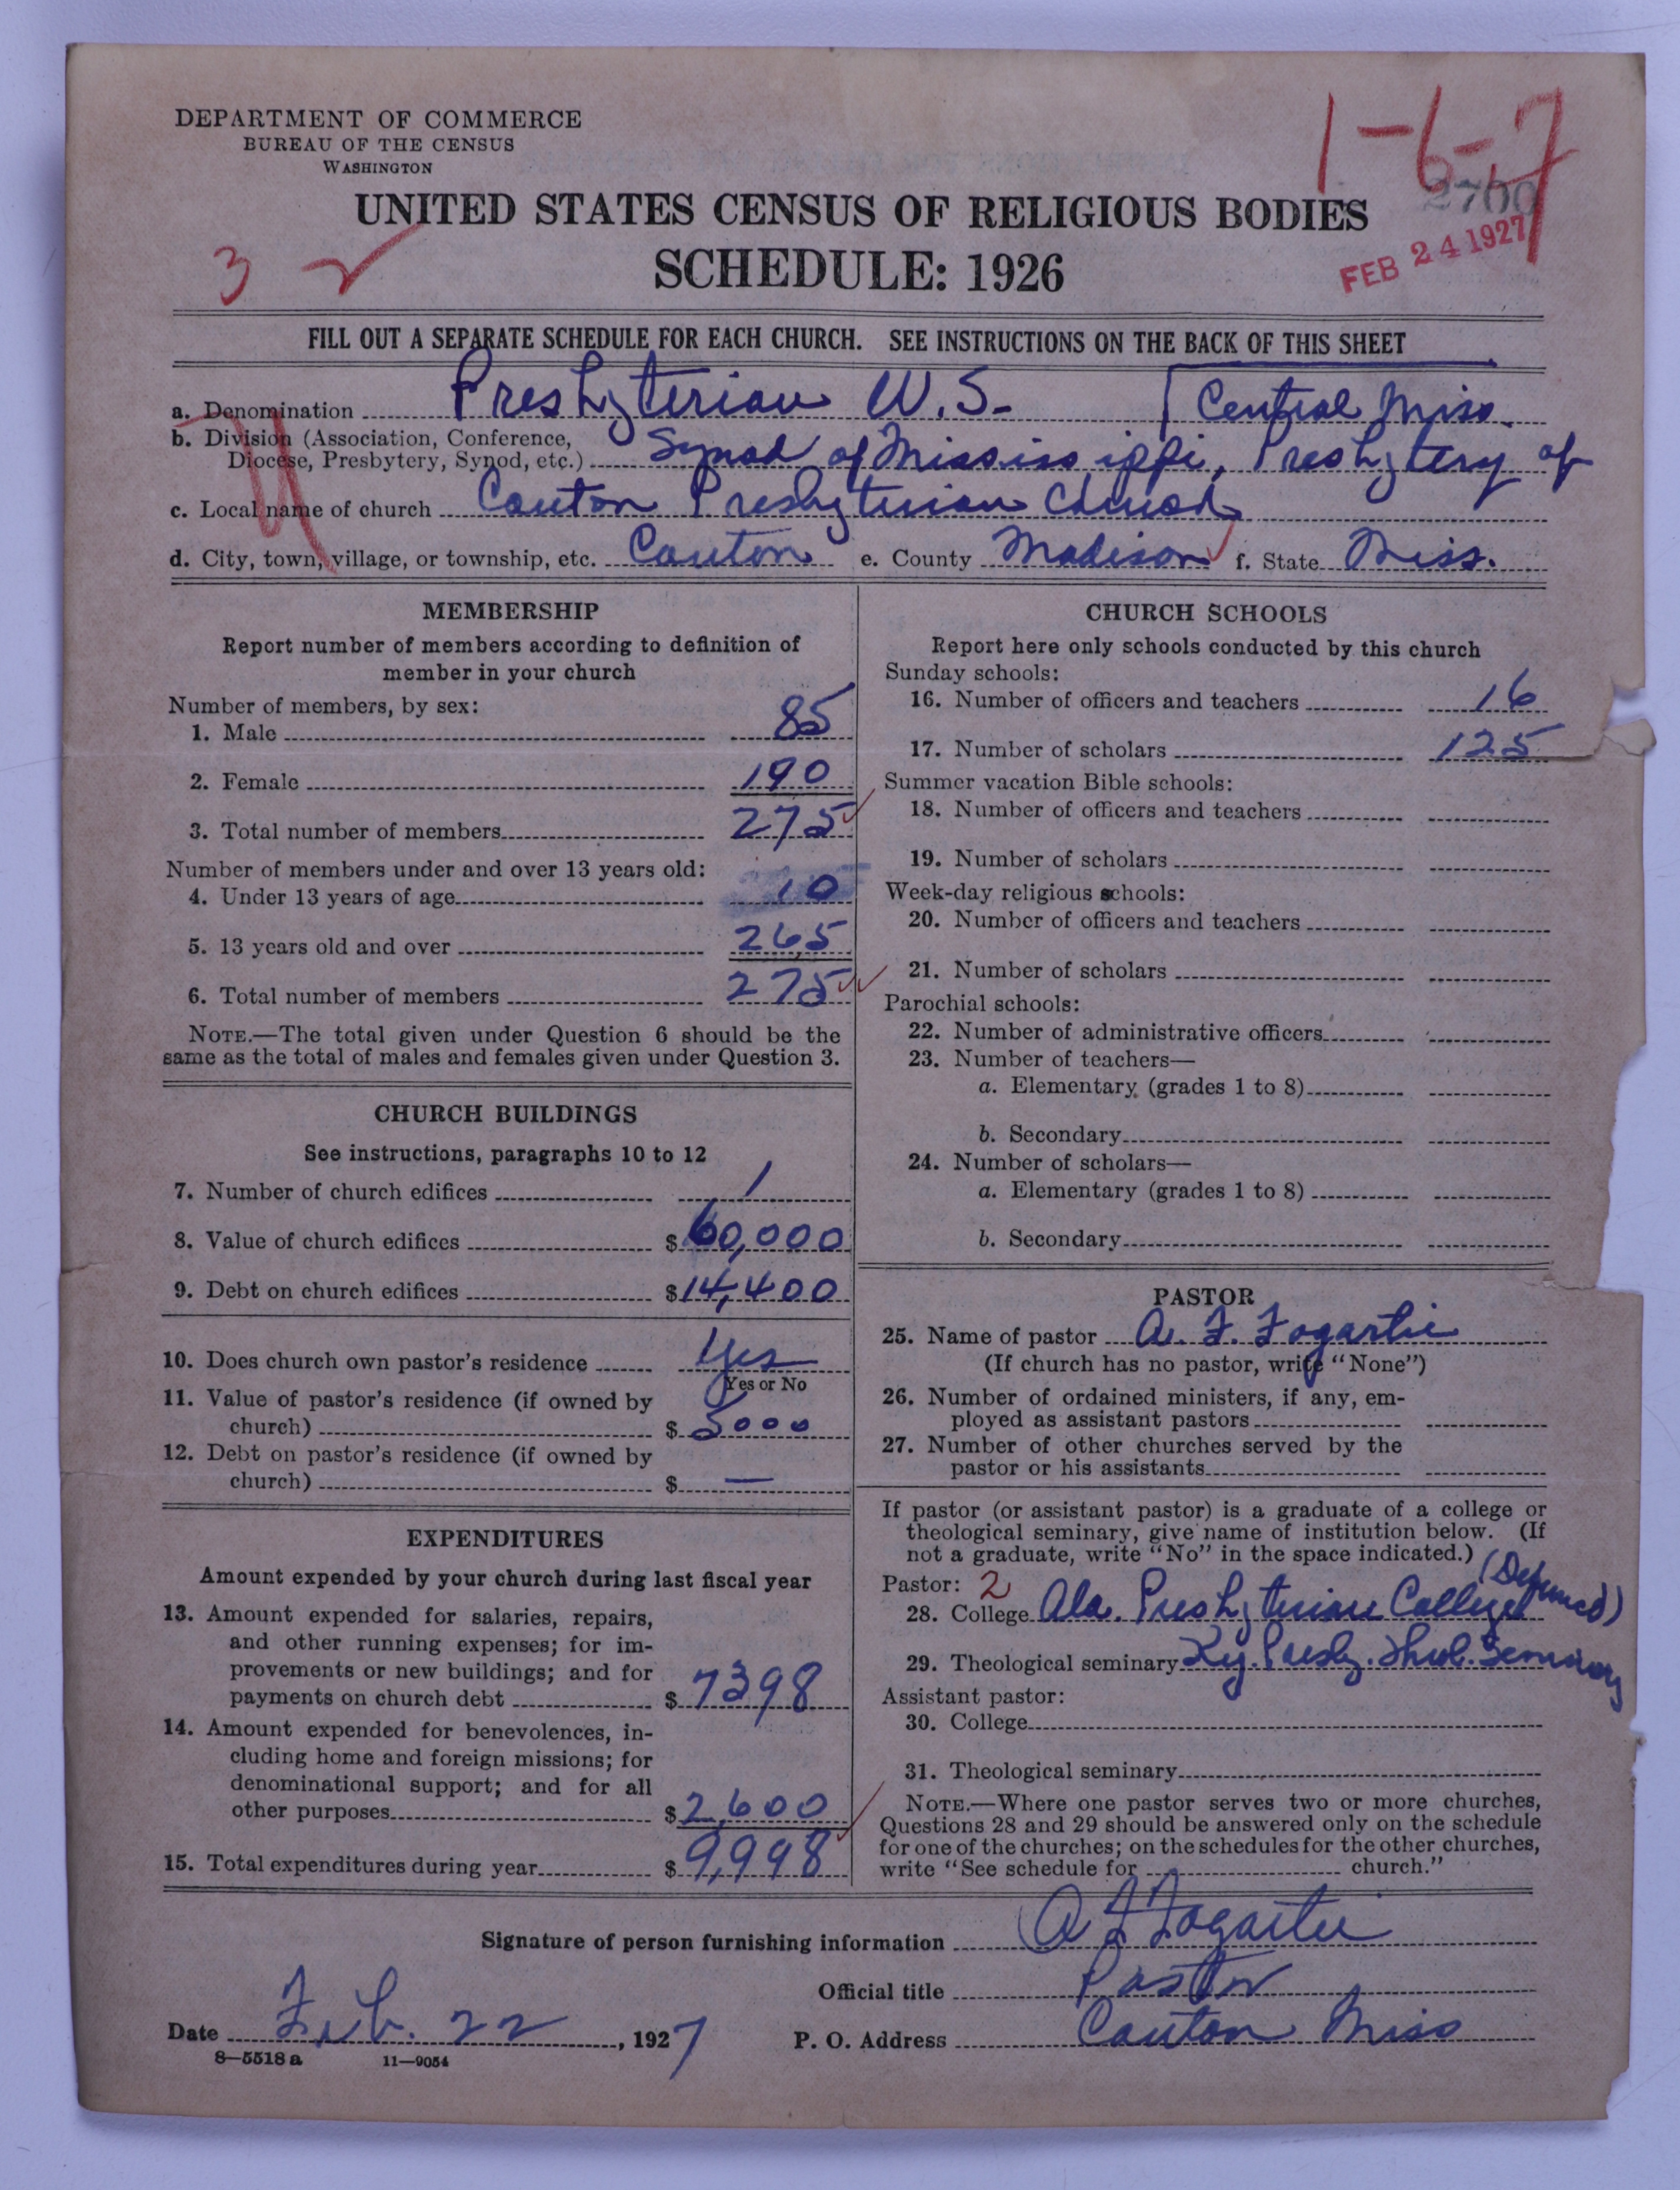 DEPARTMENT OF COMMERCE
BUREAU OF THE CENSUS
WASHINGTON
1-6-7
2700
FEB 24 1927
UNITED STATES CENSUS OF RELIGIOUS BODIES
3
SCHEDULE: 1926
FILL OUT A SEPARATE SCHEDULE FOR EACH CHURCH. SEE INSTRUCTIONS ON THE BACK OF THIS SHEET
a. Denomination Presbyterian U.S. Central Miss.
b. Division (Association, Conference, Diocese, Presbytery, Synod, etc.) Synod of Mississippi, Presbytery of
c. Local name of church Canton Presbyterian Church
d. City, town, village, or township, etc. Canton e. County Madison f. State Miss.
MEMBERSHIP
Report number of members according to definition of
member in your church
Number of members, by sex:
1. Male 85
2. Female 190
3. Total number of members 275
Number of members under and over 13 years old:
4. Under 13 years of age 10
5. 13 years old and over 265
6. Total number of members 275
NOTE.—The total given under Question 6 should be the
same as the total of males and females given under Question 3.
CHURCH BUILDINGS
See instructions, paragraphs 10 to 12
7. Number of church edifices 1
8. Value of church edifices $ 60,000
9. Debt on church edifices $ 14,400
10. Does church own pastor's residence Yes
Yes or No
11. Value of pastor's residence (if owned by
church) $ 5000
12. Debt on pastor's residence (if owned by
church) $ —
EXPENDITURES
Amount expended by your church during last fiscal year
13. Amount expended for salaries, repairs,
and other running expenses; for im-
provements or new buildings; and for
payments on church debt $ 7398
14. Amount expended for benevolences, in-
cluding home and foreign missions; for
denominational support; and for all
other purposes $ 2,600
15. Total expenditures during year $ 9,998
CHURCH SCHOOLS
Report here only schools conducted by this church
Sunday schools:
16. Number of officers and teachers 16
17. Number of scholars 125
Summer vacation Bible schools:
18. Number of officers and teachers
19. Number of scholars
Week-day religious schools:
20. Number of officers and teachers
21. Number of scholars
Parochial schools:
22. Number of administrative officers
23. Number of teachers—
a. Elementary (grades 1 to 8)
b. Secondary
24. Number of scholars—
a. Elementary (grades 1 to 8)
b. Secondary
PASTOR
25. Name of pastor A. F. Fogartie
(If church has no pastor, write "None")
26. Number of ordained ministers, if any, em-
ployed as assistant pastors
27. Number of other churches served by the
pastor or his assistants
If pastor (or assistant pastor) is a graduate of a college or
theological seminary, give name of institution below. (If
not a graduate, write "No" in the space indicated.)
Pastor: 2
28. College Ala. Presbyterian College (Defunct)
29. Theological seminary Ky. Presby. Theol. Seminary
Assistant pastor:
30. College
31. Theological seminary
NOTE.—Where one pastor serves two or more churches,
Questions 28 and 29 should be answered only on the schedule
for one of the churches; on the schedules for the other churches,
write "See schedule for church."
Signature of person furnishing information A F Fogartie
Official title Pastor
Date Feb. 22, 1927 P. O. Address Canton Miss
8—5518 a 11—9054